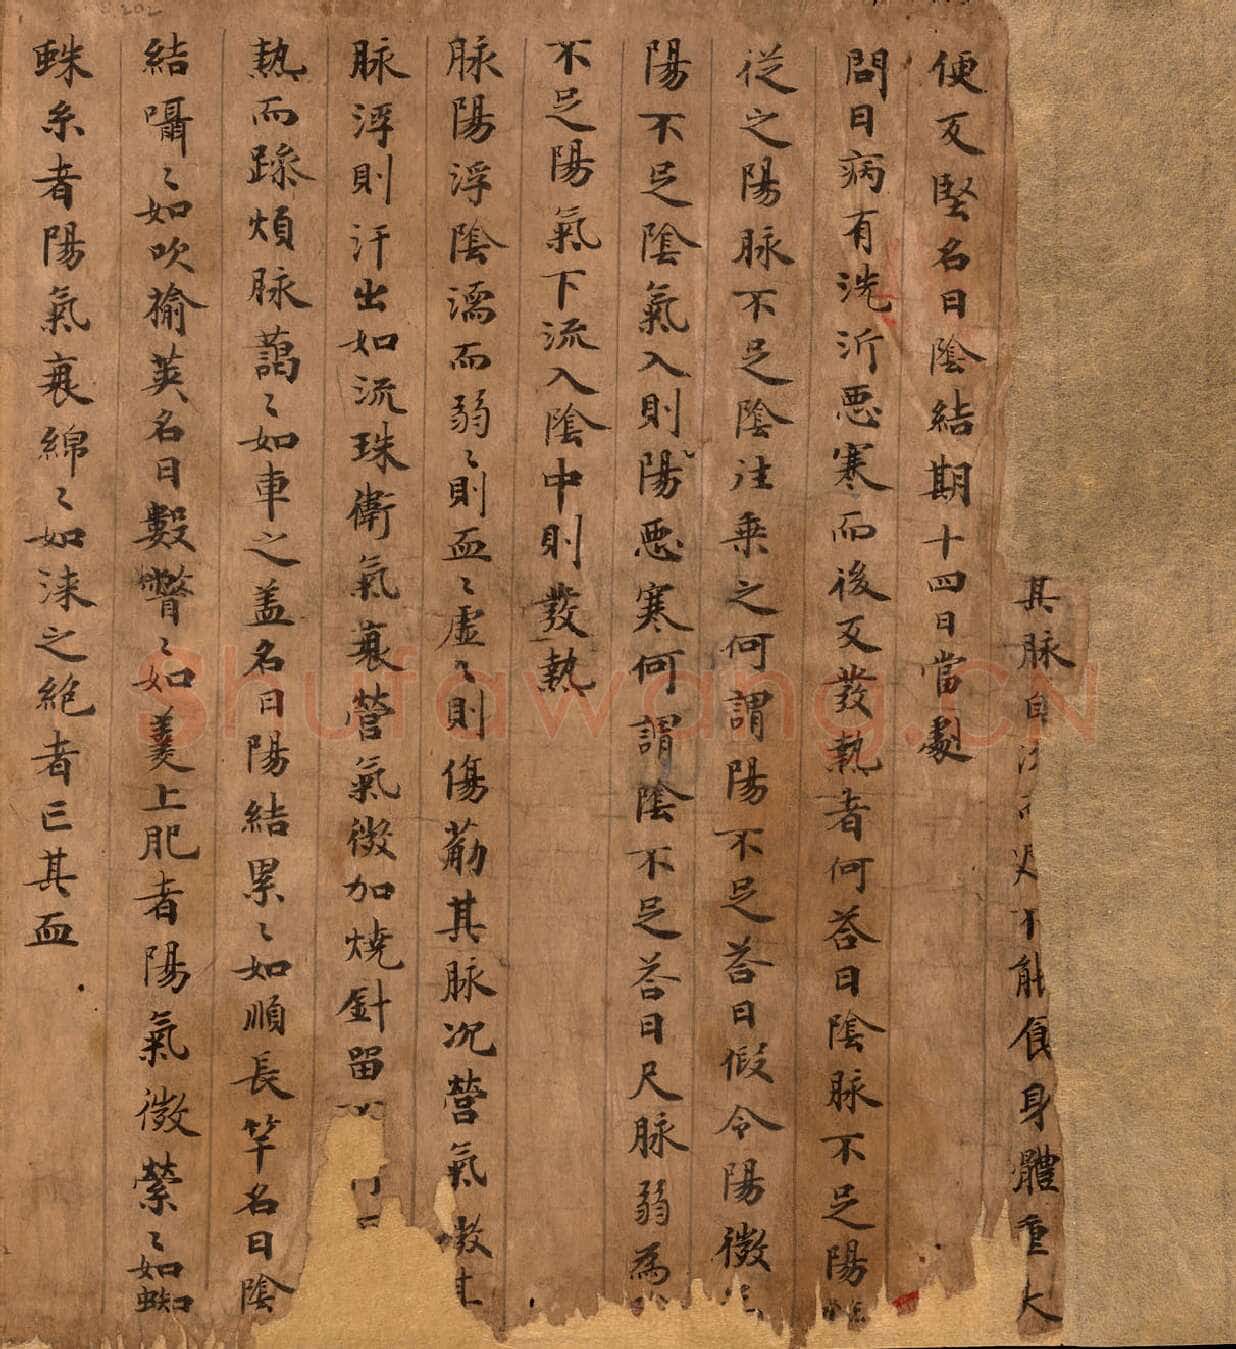 其脉自沉而遲不能食身體重大
便反堅名曰陰結期十四日當劇
問曰病有洗沂惡寒而後反發熱者何荅曰陰脉不足陽
從之陽脉不足陰往乗之何謂陽不足荅曰假令陽微
陽不足陰氣入則陽惡寒何謂陰不足荅曰尺脉弱為
不足陽氣下流入陰中則發熱
脉陽浮陰濡而弱〻則血〻虚〻則傷荕其脉沉營氣微
脉浮則汗出如流珠衛氣衰營氣微加燒針留
熱而躁煩脉藹〻如車之盖名曰陽結累〻如順長竿名曰陰
結囁〻如吹榆莢名曰數瞥〻如羹上肥者陽氣微縈〻如蜘
蛛糸者陽氣衰綿〻如淶之絶者亡其血
Shufawang.CN